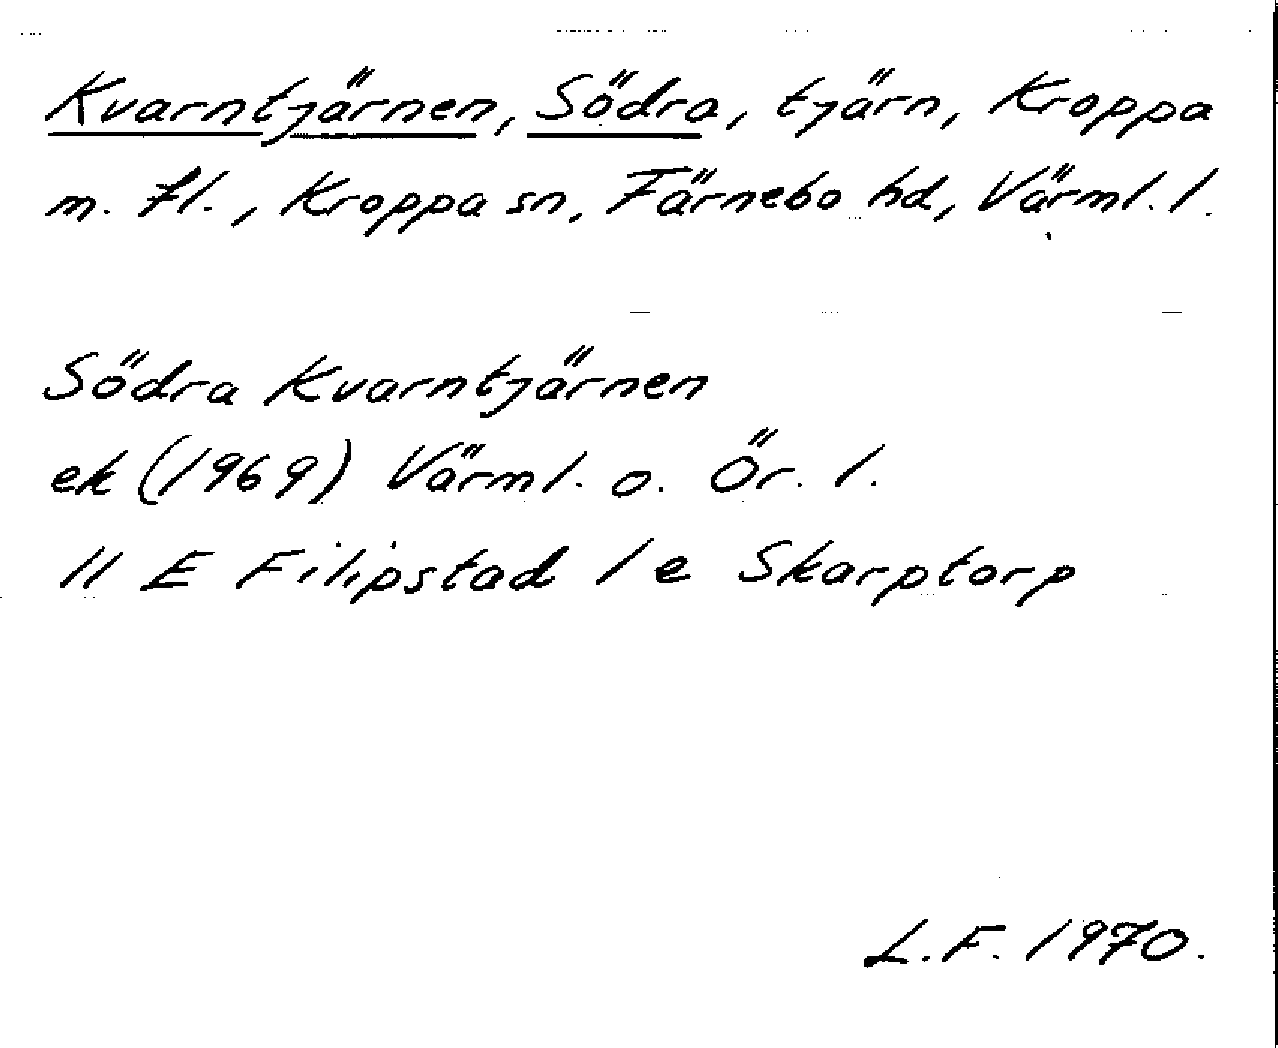 Kvarntjärnen, Södra, tjärn, Kroppa
m. fl., Kroppa sn, Färnebo hd, Värml. l.
Södra Kvarntjärnen
ek (1969) Värml. o. Ör. l.
11 E Filipstad 1 e Skarptorp
L.F. 1970.